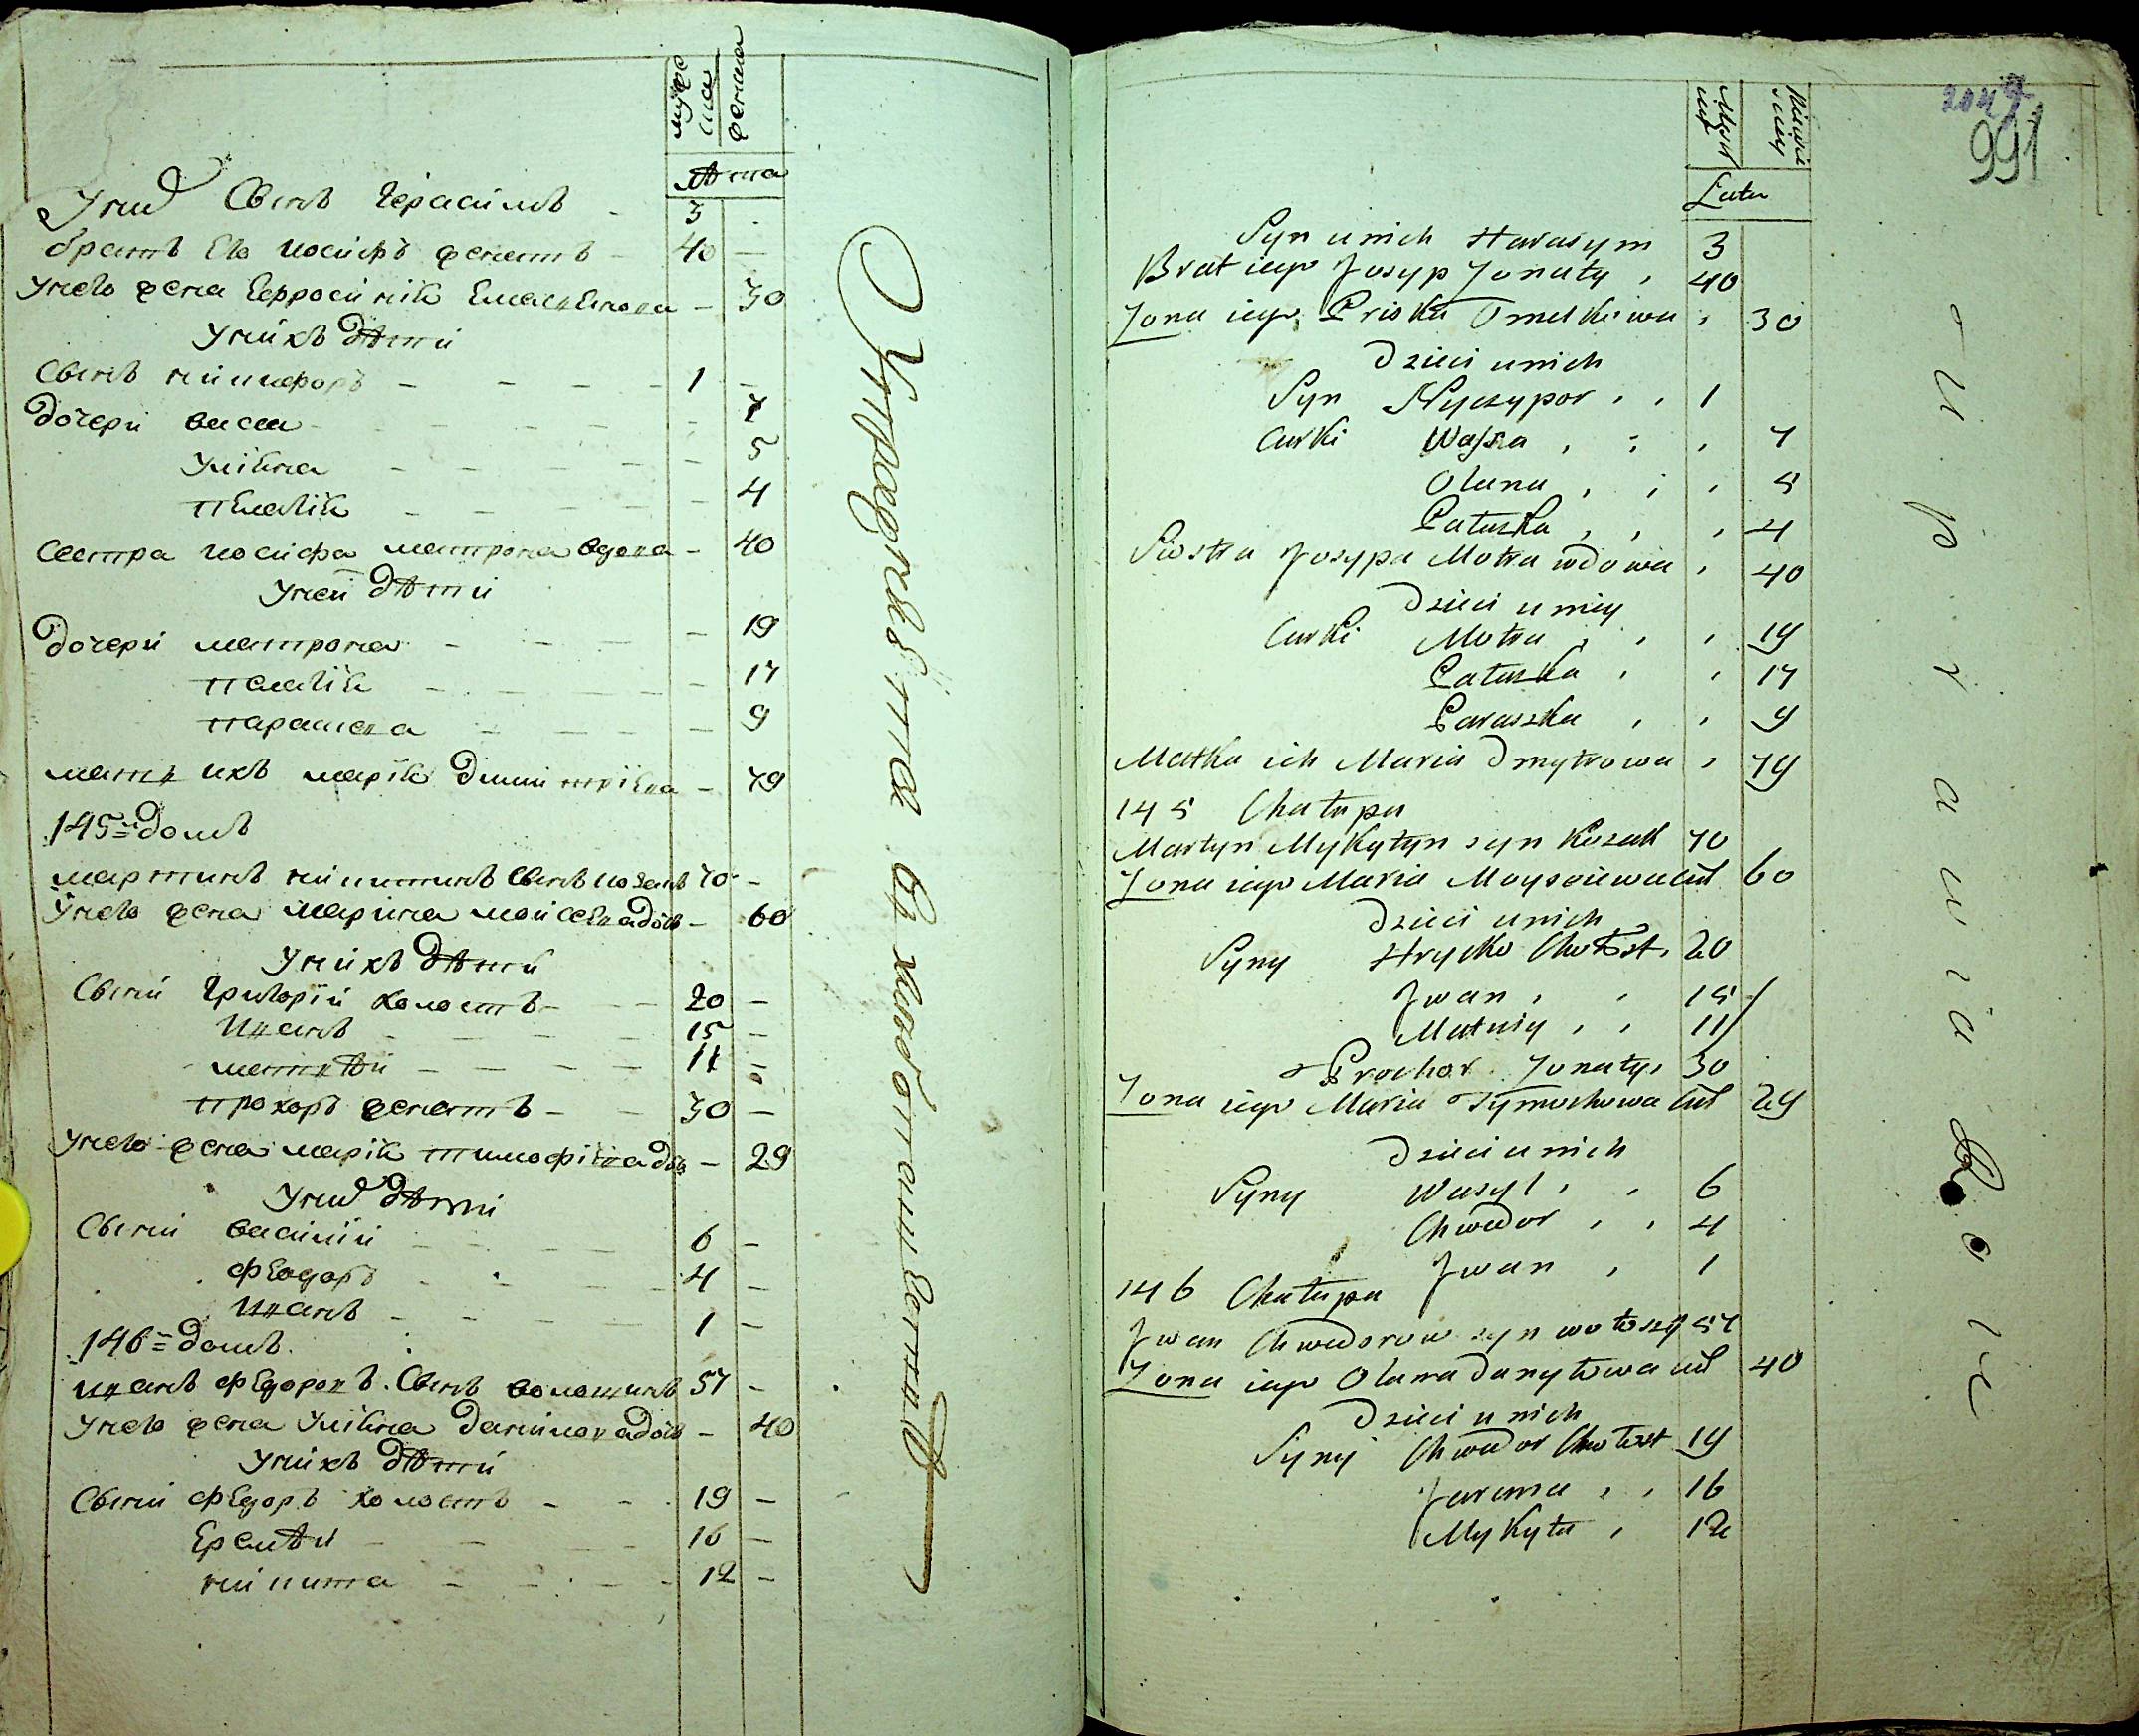 мужеска
женска
лѣта
У нид Сынъ Герасимъ - 3
братъ Его Иосифъ женатъ - 40 -
У него жена Евфросинія Емельянова - 30
У нихъ дѣти
Сынъ никифоръ - 1 -
Дочери васса - 7
Уліяна - 5
пелагія - 4
Сестра иосифа матрона вдова - 40
У ней дѣти
Дочери матрона - 19
пелагія - 17
параскева - 9
мать ихъ марія Димитріева - 79
145й домъ
мартинъ никитинъ Сынъ козакъ 70 -
У него жена Марина моисеева дочь - 60
У нихъ дѣти
Сыни Григорій холостъ - 20 -
Иванъ - 15 -
матвѣй - 11 -
прохоръ женатъ - 30 -
У него жена марія тимофіева дочь - 29
У нид дѣти
Сыни василій - 6 -
Феодоръ - 4 -
Иванъ - 1 -
146й домъ
иванъ Федоровъ Сынъ волошинъ 57 -
У него жена Уліяна данилова дочь - 40
У нихъ дѣти
Сыни Федоръ холостъ - 19 -
Еремѣй - 16 -
никита - 12 -
2047
991
Latu
Syn u nich Harasym 3
Brat iego Josyp Żonaty 40
Żona iego Priska Omelkowa 30
Dzieci u nich
Syn Nyczypor 1
Curki Wassa 7
Olana 5
Palaszka 4
Siostra Josypa Motra wdowa 40
Dzieci u niey
Curki Motra 19
Palaszka 17
Paraszka 9
Matka ich Maria Dmytrowa 79
145 Chałupa
Martyn Mykytyn syn Kozak 70
Żona iego Maria Moyseiewa cur 60
Dzieci u nich
Syny Hrycko Chołost 20
Jwan 15
Matwiy 11
Prochor Żonaty 30
Żona iego Maria Tymochowa cur 29
Dzieci u nich
Syny Wasyl 6
Chwedor 4
Jwan 1
146 Chałupa
Jwan Chwedorow syn wołoszyn 57
Żona iego Olana Danyłowa cur 40
Dzieci u nich
Syny Chwedor Chołost 19
Jarema 16
Mykyta 12